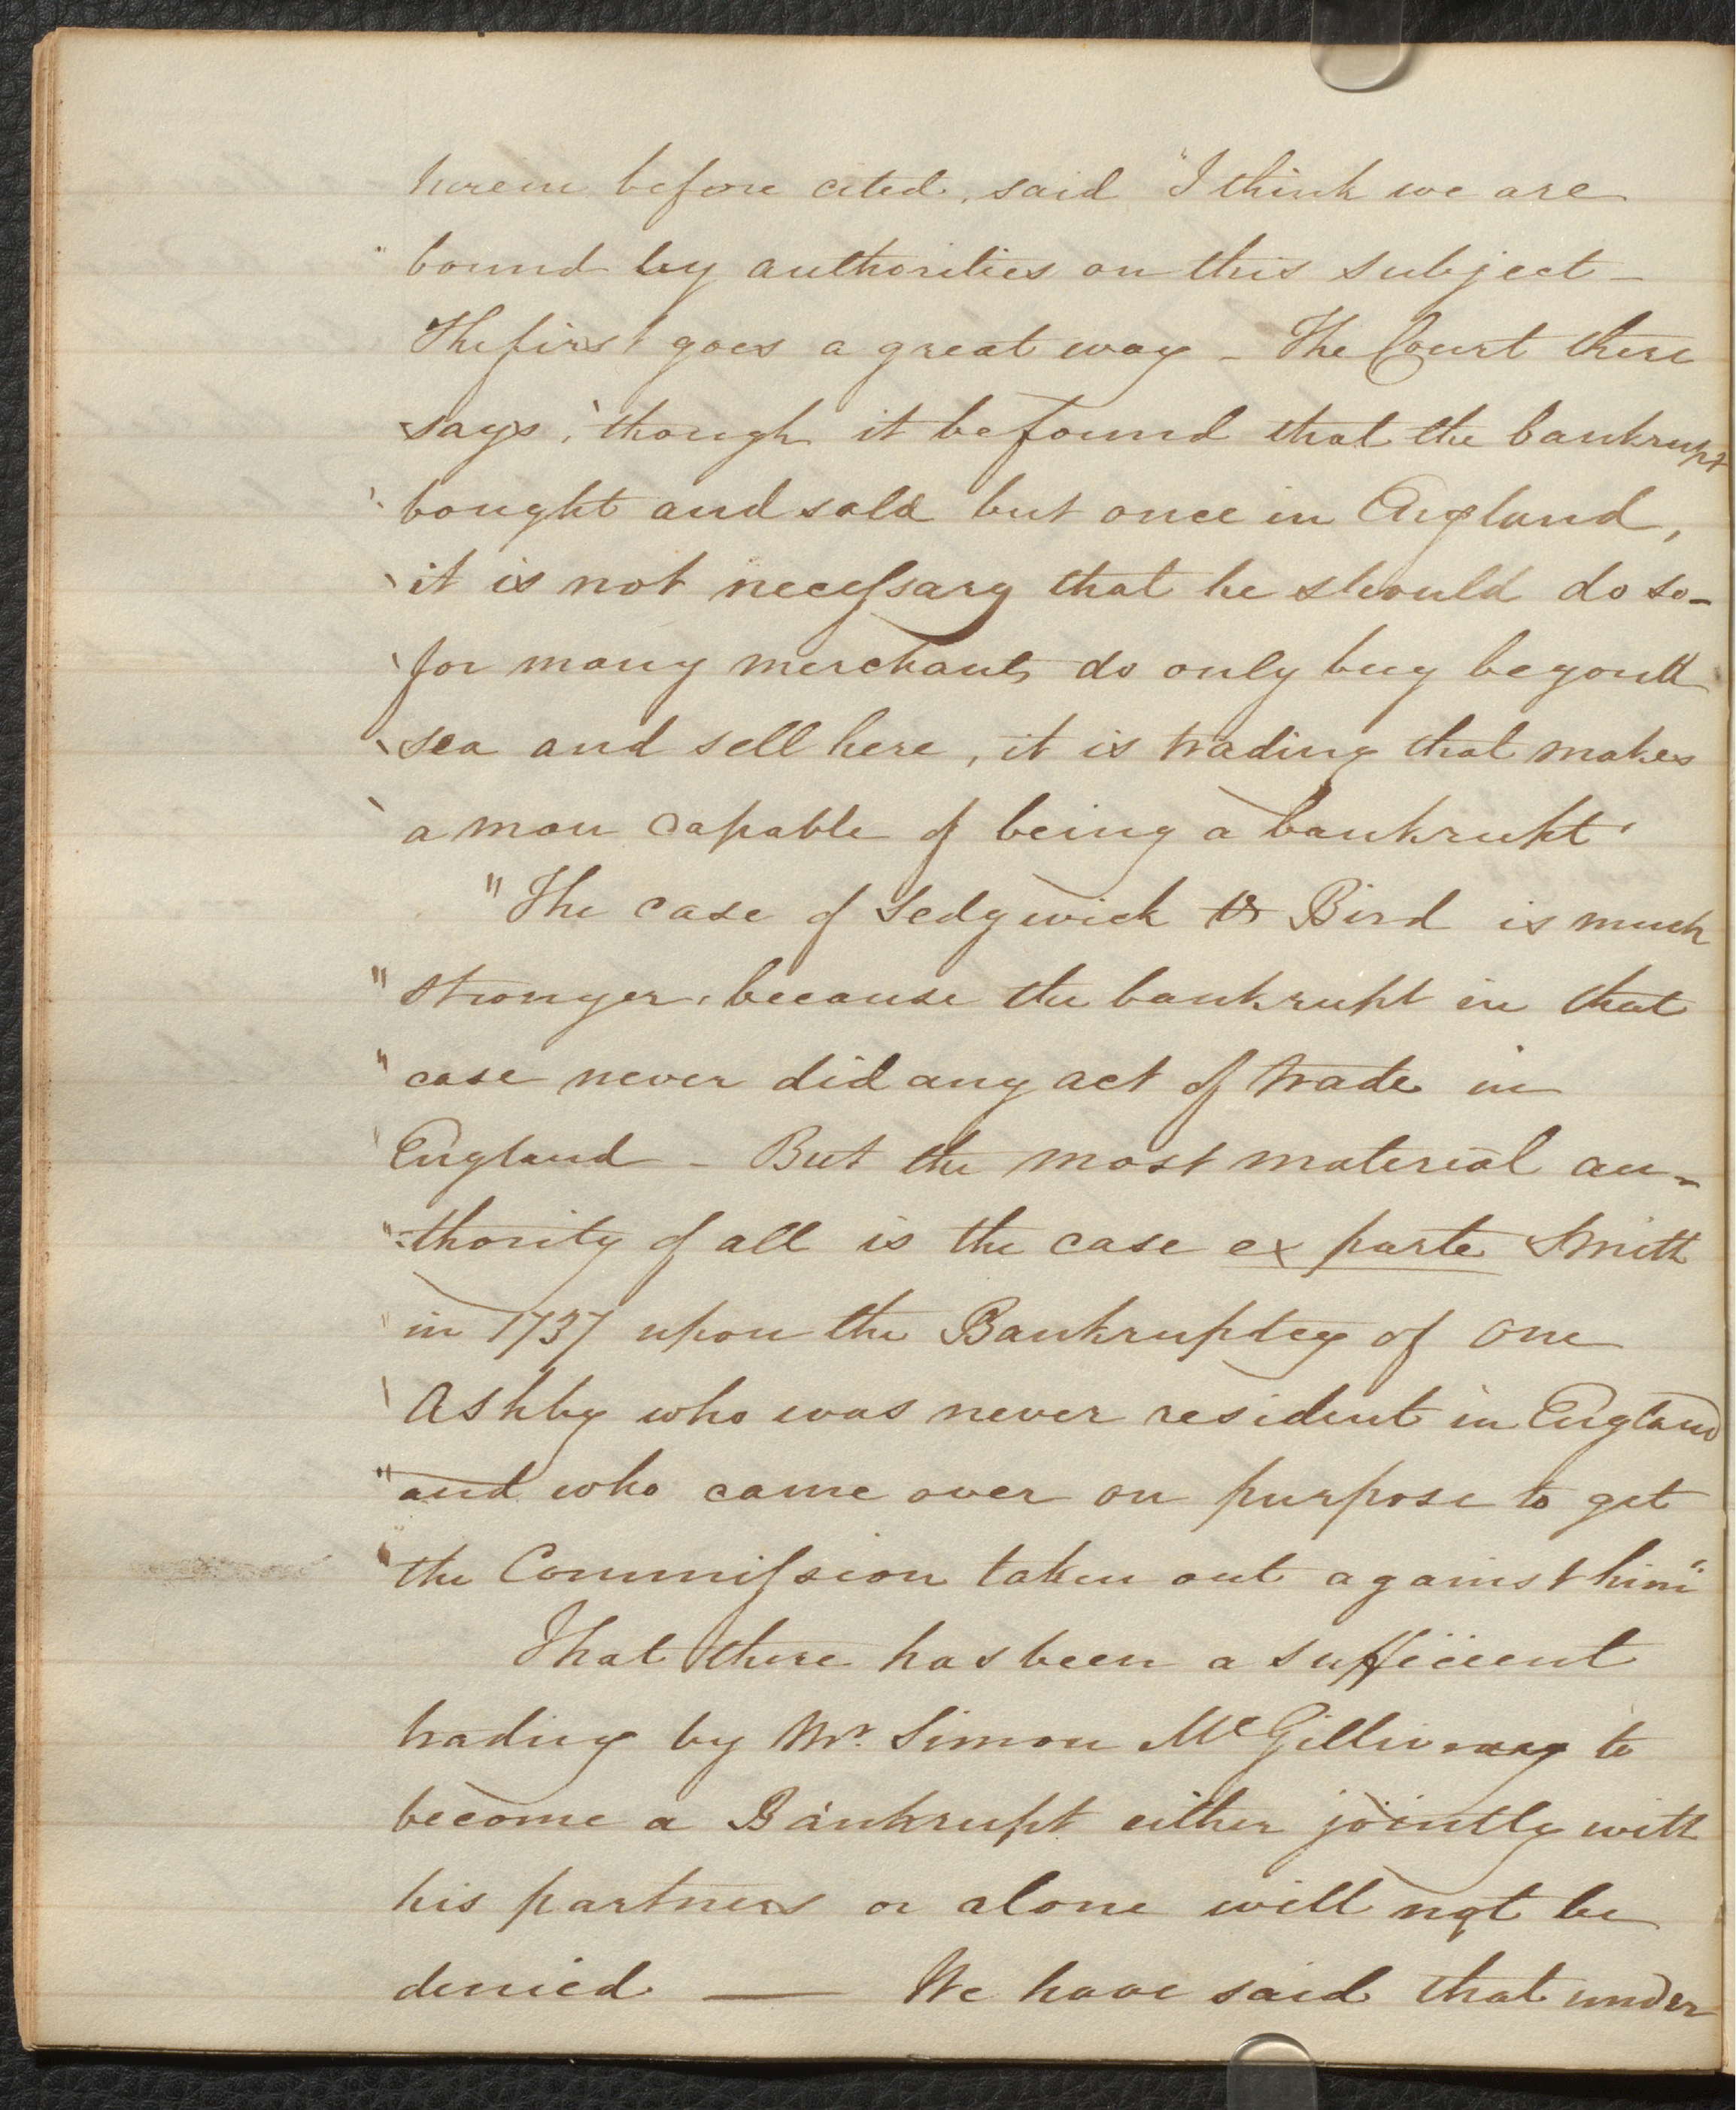 herein before cited, said "I think we are
" bound by authorities on this subject –
The first goes a great way – The Court there
says, 'though it be found that the bankrupt
' bought and sold but once in England,
' it is not necessary that he should do so –
' for many merchants do only buy beyond
' sea and sell here, it is trading that makes
' a man capable of being a bankrupt'
"The case of Sedgwick vs Bird is much
" stronger, because the bankrupt in that
" case never did any act of trade in
" England – But the most material au-
" -thority of all is the case ex parte Smith
" in 1737 upon the Bankruptcy of one
" Ashby who was never resident in England
" and who came over on purpose to get
" the Commission taken out against him"
That there has been a sufficient
trading by Mr. Simon McGillivray to
become a Bankrupt either jointly with
his partners or alone will not be
denied — We have said that under